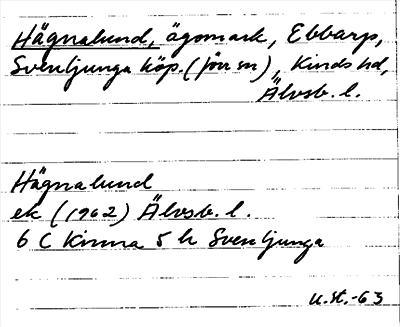 Hägnalund, ägomark, Ebbarp,
Svenljunga köp. (förr sn), Kinds hd,
Älvsb. l.
Hägnalund
ek (1962) Älvsb. l.
6 C Kinna 5 h Svenljunga
U.St.-63